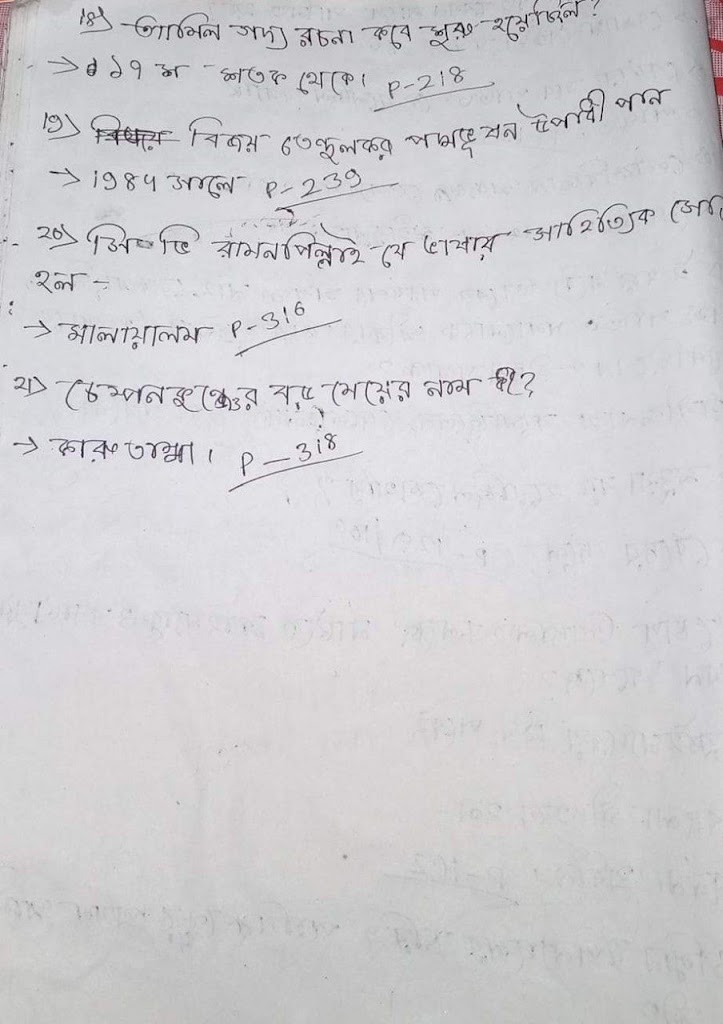 18) তামিল গদ্য রচনা কবে শুরু হয়েছিল?
→ ১৭ শ শতক থেকে। P-218
19) বিজয় তেন্ডুলকর পদ্মভূষন উপাধী পান
→ 1984 সালে P-239
২০) সি ভি রামনপিল্লাই যে ভাষার সাহিত্যিক
হল -
→ মালায়ালম P-316
২১) চেম্পনকুঞ্জের বড় মেয়ের নাম কী?
→ কারুতাম্মা। P-318